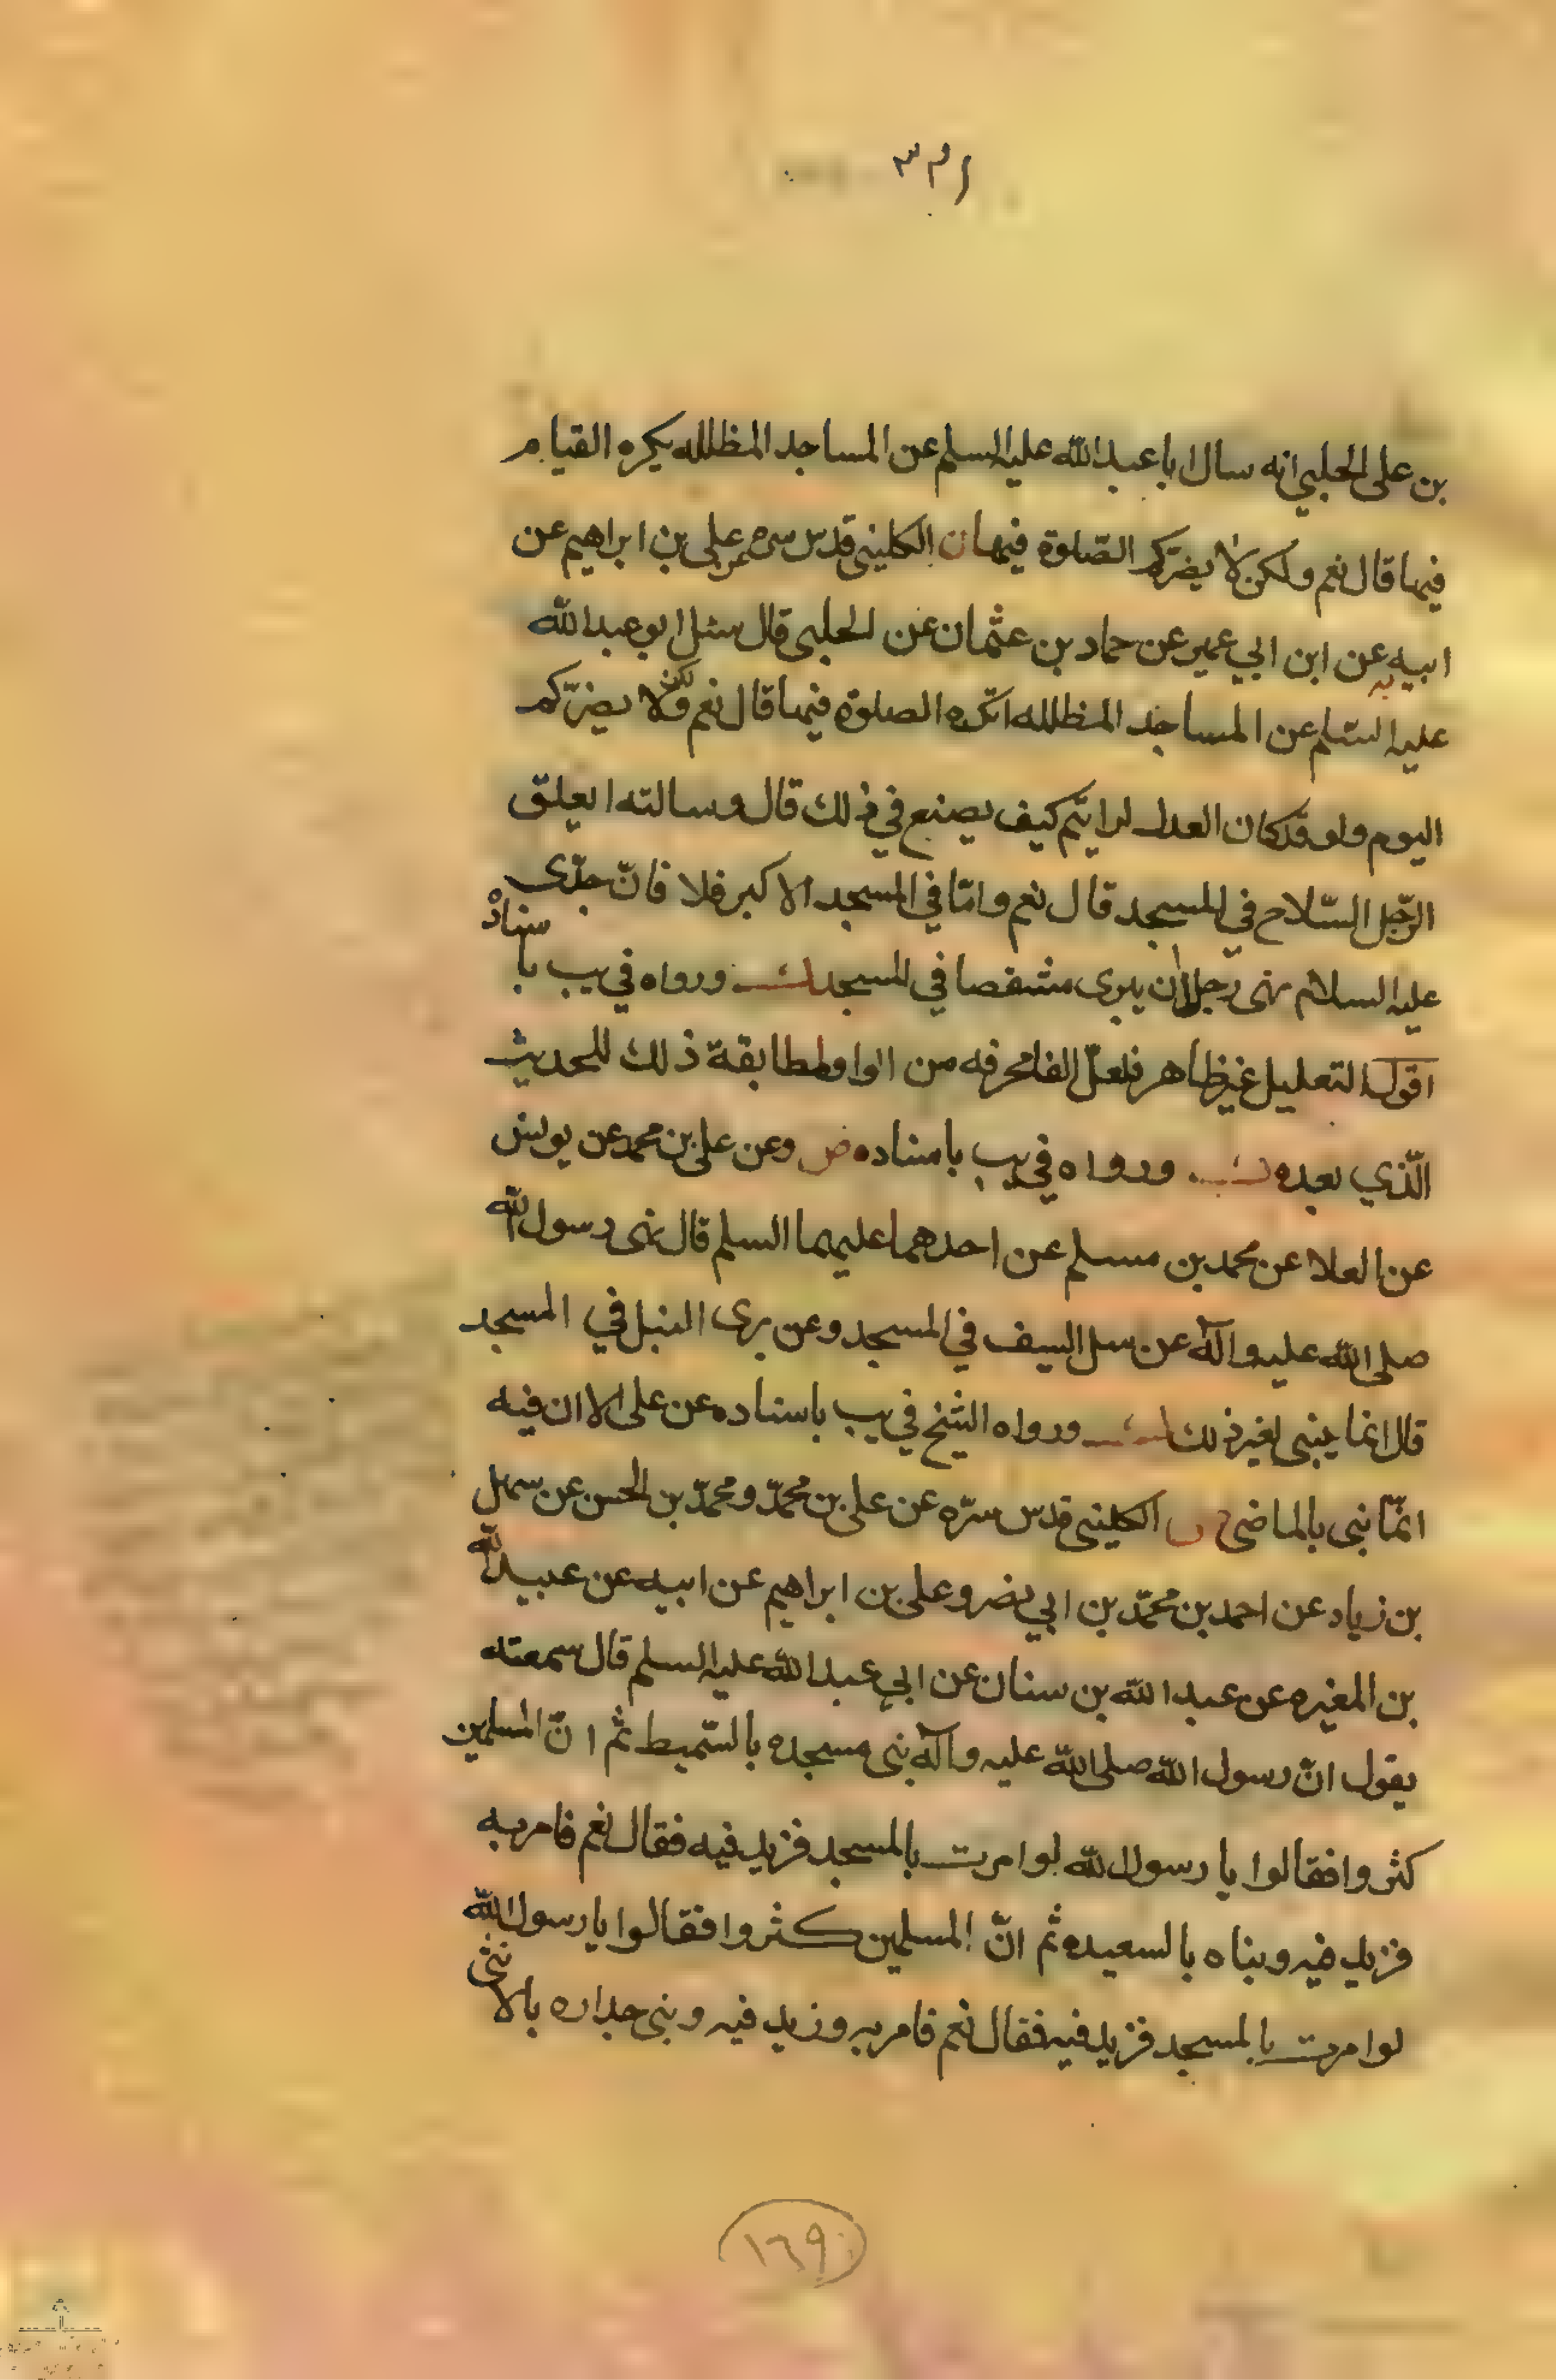 بن على الحلبي انه سال ابا عبد الله عليه السلم عن المساجد المظلله يكره القيام
فيها قال نعم ولكن لا يضركم الصّلوة فيها ن الكليني قدس سره عن علي بن ابراهيم عن
ابيه عن ابن ابي عمير عن حماد بن عثمان عن الحلبي قال سئل ابو عبد الله
عليه السّلم عن المساجد المظلله اتكره الصلوة فيها قال نعم ولكن لا يضرّكم
اليوم ولو قد كان العدل لرايتم كيف يصنع في ذلك قال وسالته ايعلق
الرّجل السّلاح في المسجد قال نعم وامّا في المسجد الاكبر فلا فانّ جدّى
عليه السلام نهى رجلا ان يبرى مشقصا في المسجد ورواه في يب باسناده
اقول التعليل غير ظاهر فلعلّ الفا محرفه من الواو لمطابقة ذلك للحديث
الّذي بعده ورواه في يب باسناده وعن على بن محمد عن يونس
عن العلا عن محمد بن مسلم عن احدهما عليهما السلم قال نهى رسول الله
صلى الله عليه وآله عن سل السيف في المسجد وعن برى النبل في المسجد
قال انما يبنى لغير ذلك ورواه الشيخ في يب باسناده عن على الا ان فيه
انمّا بنى بالماضى الكليني قدس سرّه عن على بن محمّد ومحمّد بن الحسن عن سهل
بن زياد عن احمد بن محمّد بن ابي نصر وعلى بن ابراهيم عن ابيه عن عبد الله
بن المغيره عن عبد الله بن سنان عن ابي عبد الله عليه السلم قال سمعته
يقول انّ رسول الله صلى الله عليه وآله بنى مسجده بالسّميط ثم انّ المسلمين
كثروا فقالوا يا رسول الله لو امرت بالمسجد فزيد فيه فقال نعم فامر به
فزيد فيه وبناه بالسعيده ثم انّ المسلمين كثروا فقالوا يا رسول الله
لو امرت بالمسجد فزيد فيه فقال نعم فامر به وزيد فيه وبنى جداره بالانثى
١٦٩